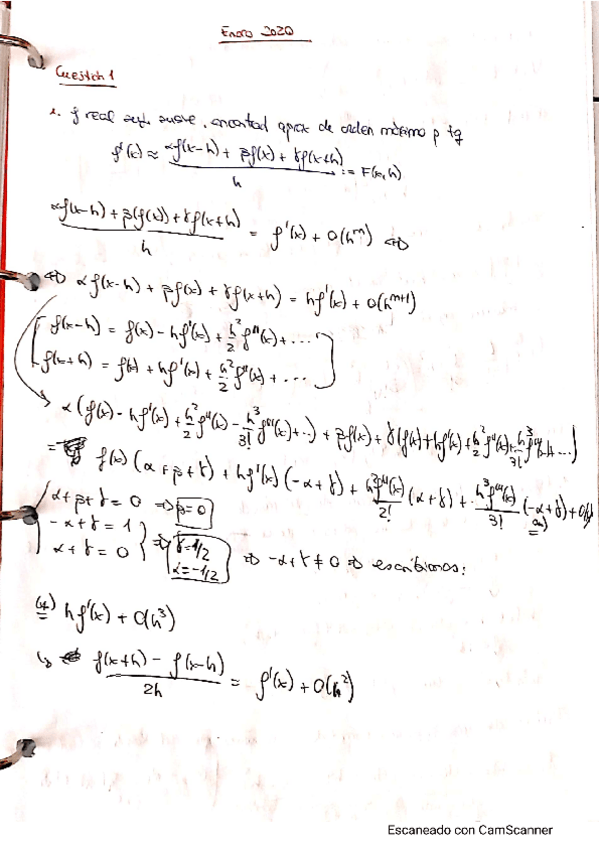 Enero 2020
Cuestión 1
1. f real suf. suave, encontrad aprox de orden máximo p tq
f'(x) ≈ (αf(x-h) + βf(x) + γf(x+h)) / h := F(x,h)
(αf(x-h) + β(f(x)) + γf(x+h)) / h = f'(x) + O(h^m) ⇔
⇔ αf(x-h) + βf(x) + γf(x+h) = hf'(x) + O(h^{m+1})
[f(x-h) = f(x) - hf'(x) + h²/2 f''(x) + ...
f(x+h) = f(x) + hf'(x) + h²/2 f''(x) + ...]
α(f(x) - hf'(x) + h²/2 f''(x) - h³/3! f'''(x) + ..) + βf(x) + γ(f(x) + hf'(x) + h²/2 f''(x) + h³/3! f'''(x) + ...)
= f(x)(α+β+γ) + hf'(x)(-α+γ) + h²f''(x)/2! (α+γ) + h³f'''(x)/3! (-α+γ) +
α+β+γ = 0 ⇒ β=0
-α+γ = 1
α+γ = 0 } ⇒ γ=1/2 α=-1/2 ⇒ -α+γ ≠ 0 ⇒ escribimos:
(*) = hf'(x) + O(h³)
↳ (f(x+h) - f(x-h)) / 2h = f'(x) + O(h²)
Escaneado con CamScanner